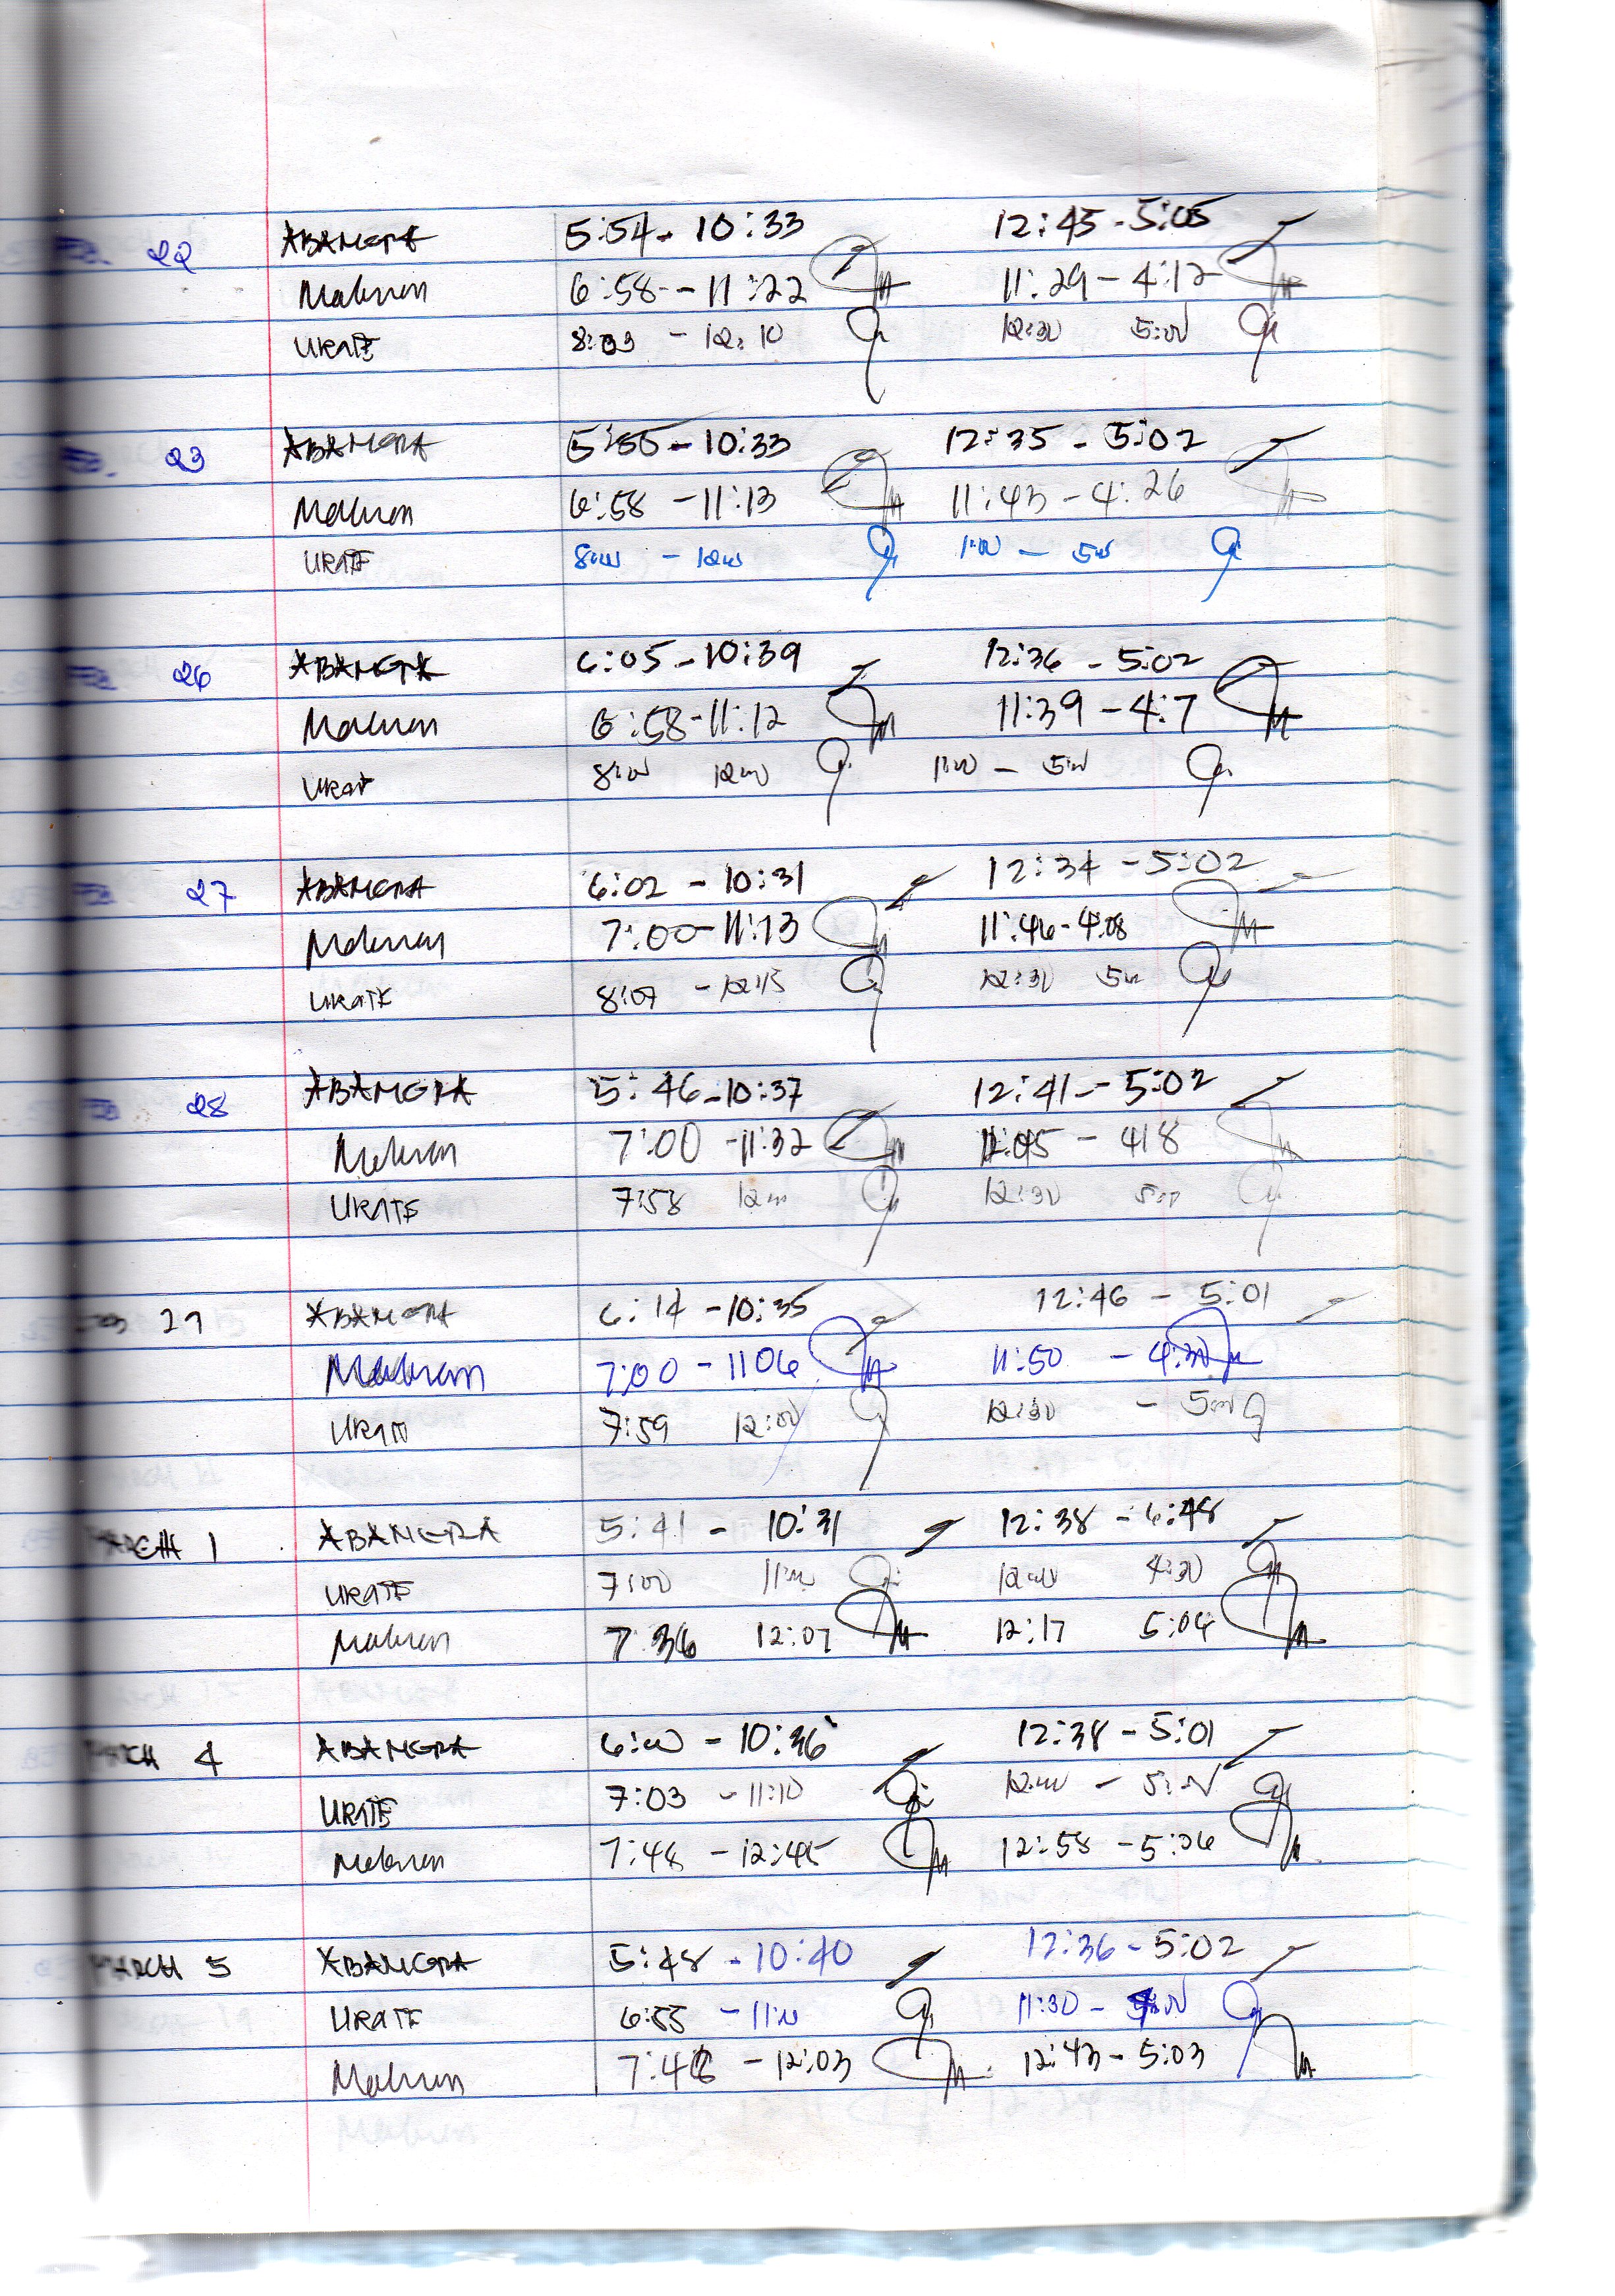 22 ABANGRA 5:54 - 10:33 12:45 - 5:05
6:58 - 11:22 11:29 - 4:12
URATE 8:03 - 12:10 12:30 5:00
23 ABANGRA 5:55 - 10:33 12:35 - 5:02
6:58 - 11:13 11:43 - 4:26
URATE 8:00 - 12:00 1:00 - 5:00
26 ABANGRA 6:05 - 10:39 12:36 - 5:02
6:58 - 11:12 11:39 - 4:7
URATE 8:00 12:00 1:00 - 5:00
27 ABANGRA 6:02 - 10:31 12:34 - 5:02
7:00 - 11:13 11:46 - 4:08
URATE 8:07 - 12:15 12:30 5:00
28 ABANGRA 5:46 - 10:37 12:41 - 5:02
7:00 - 11:32 418
URATE 7:58 12:00 12:30 5:00
29 ABANGRA 6:14 - 10:35 12:46 - 5:01
7:00 - 1106 11:50 - 4:30
URATE 7:59 12:00 12:30 - 5:00
MARCH 1 ABANGRA 5:41 - 10:31 12:38 - 6:48
URATE 7:00 11:00 12:00 4:30
7 36 12:07 12:17 5:04
MARCH 4 ABANGRA 6:00 - 10:36 12:38 - 5:01
URATE 7:03 - 11:10 12:00 - 5:00
7:48 - 12:45 12:58 - 5:06
MARCH 5 ABANGRA 5:48 - 10:40 12:36 - 5:02
URATE 6:55 - 11:00 11:30 -
- 12:03 12:43 - 5:03